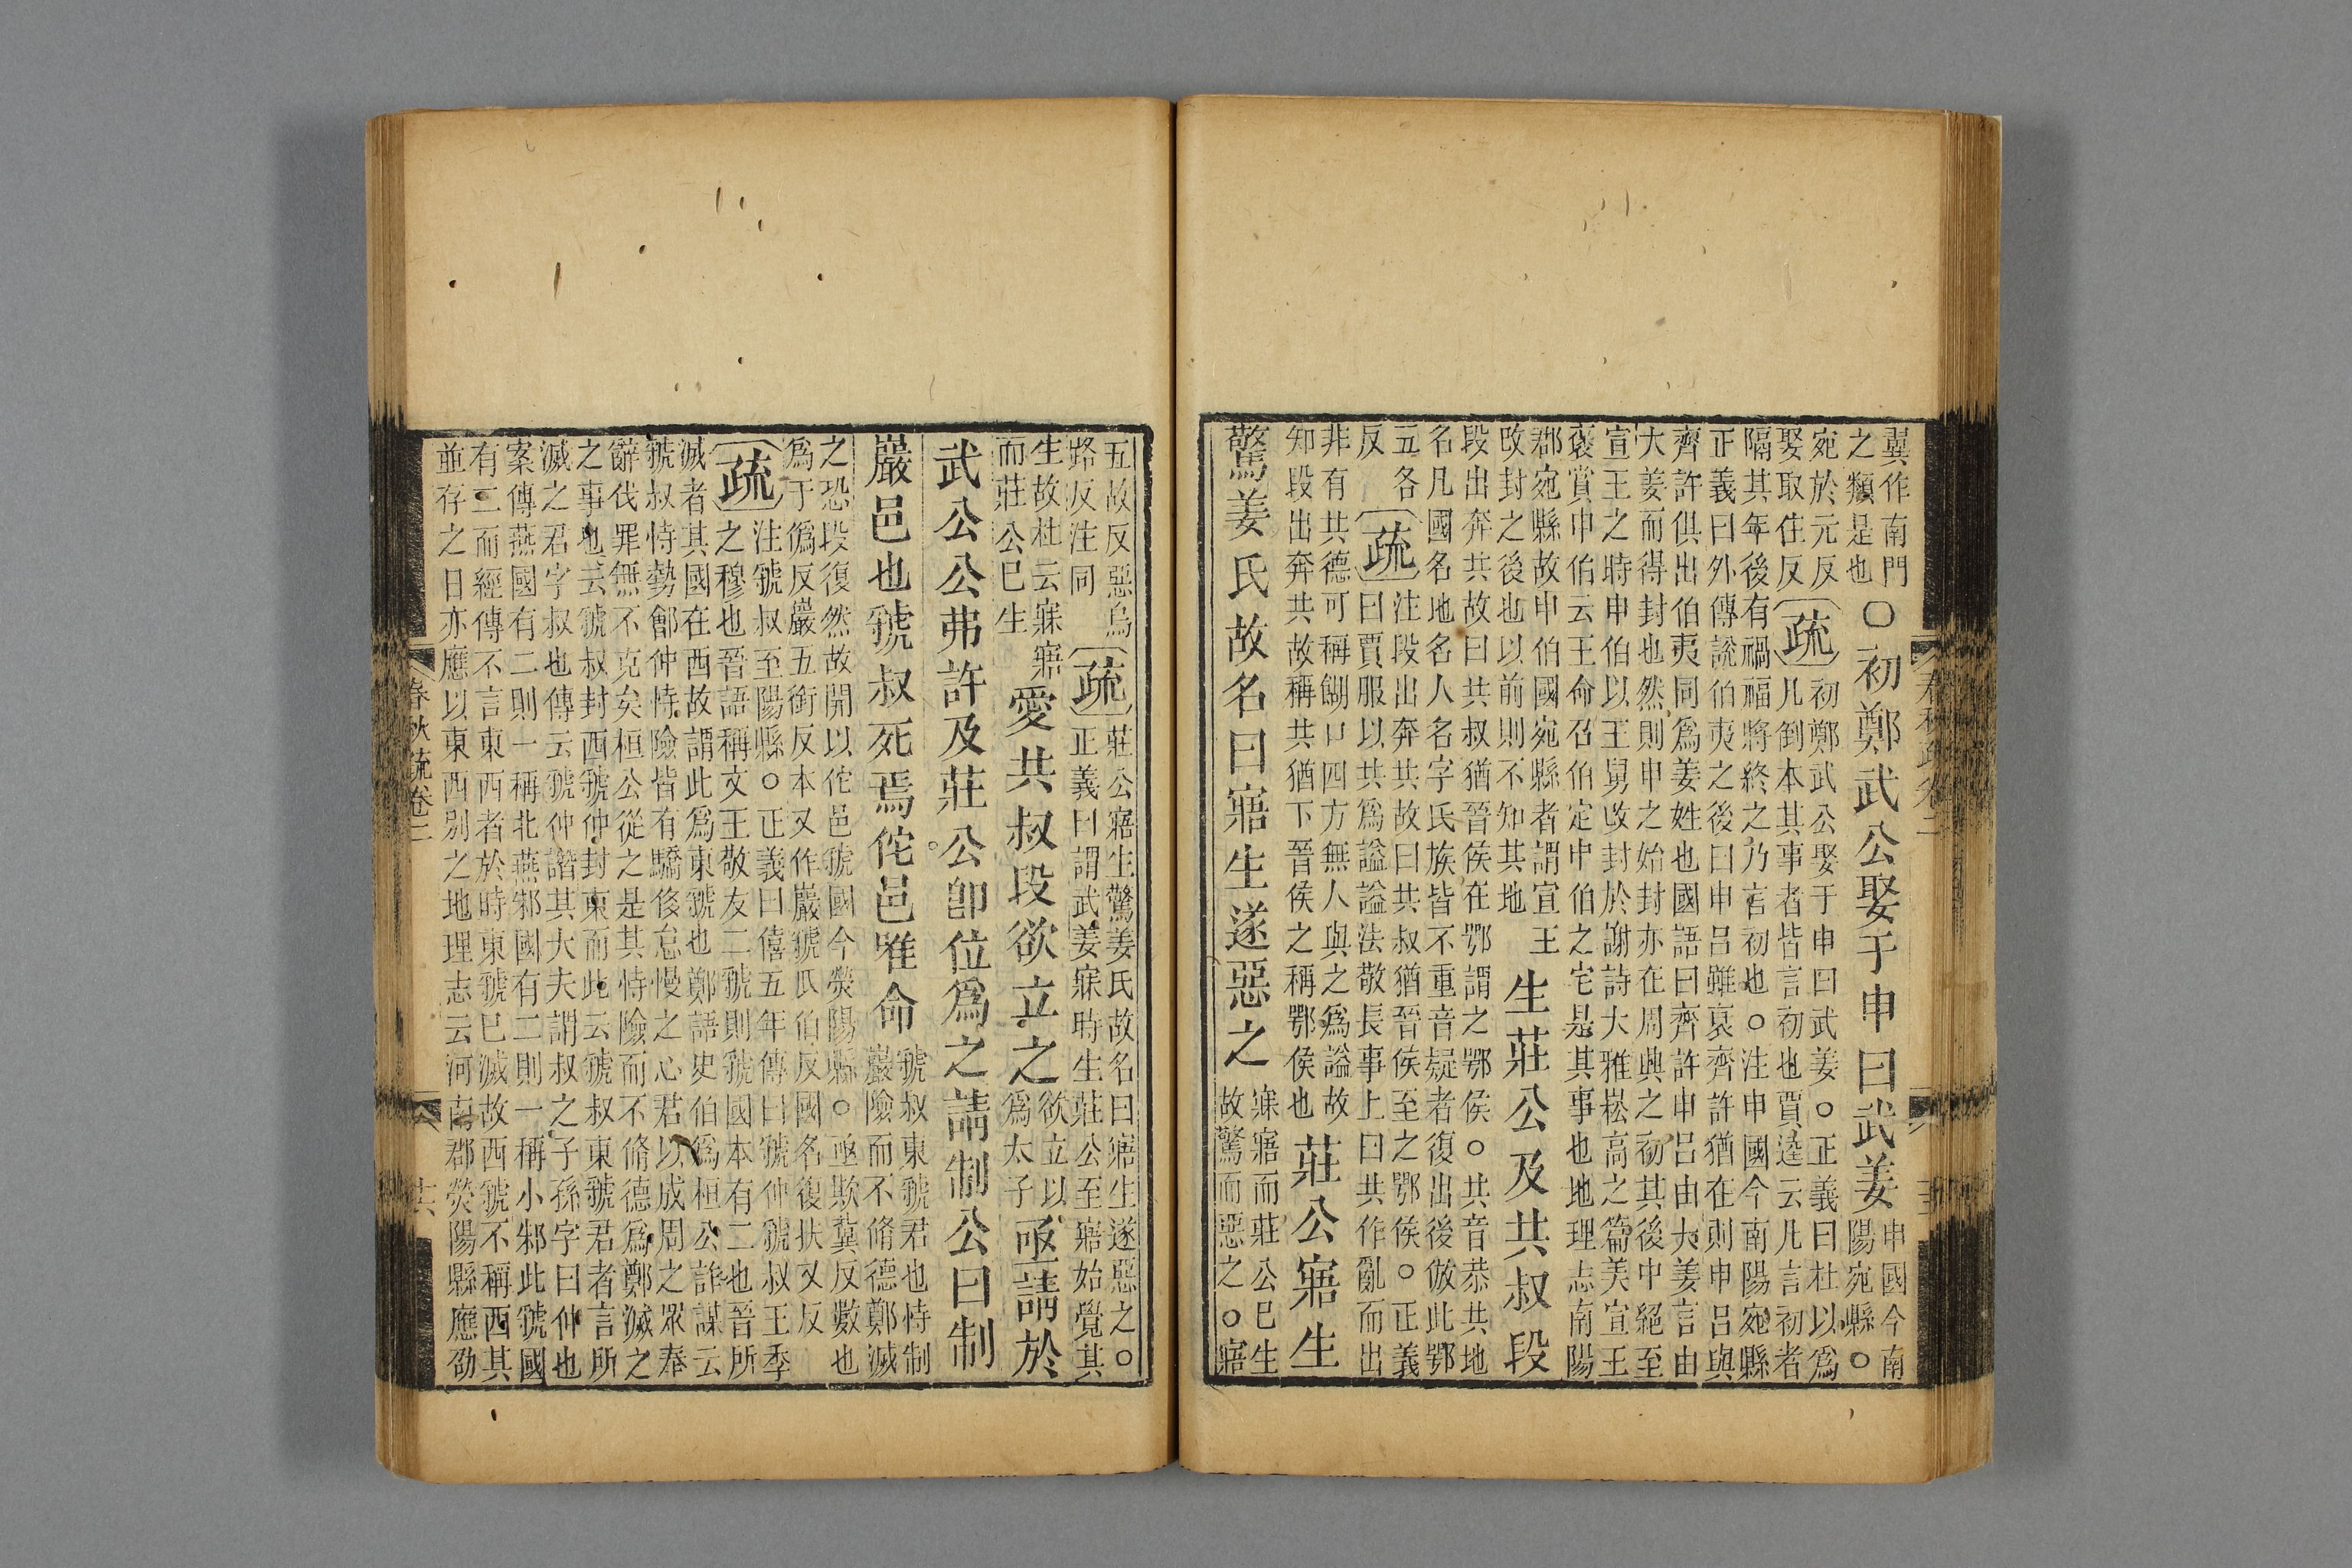 冀作南門
之類是也
○初鄭武公娶于申曰武姜
申國今南
陽宛縣○
宛於元反
娶取住反
疏
初鄭武公娶于申曰武姜○正義曰杜以爲
凡倒本其事者皆言初也賈逵云凡言初者
隔其年後有禍福將終之乃言初也○注申國今南陽宛縣
正義曰外傳說伯夷之後曰申呂雖衰齊許猶在則申呂與
齊許俱出伯夷同爲姜姓也國語曰齊許申呂由大姜言由
大姜而得封也然則申之始封亦在周興之初其後中絕至
宣王之時申伯以王舅改封於謝詩大雅崧高之篇美宣王
褒賞申伯云王命召伯定申伯之宅是其事也地理志南陽
郡宛縣故申伯國宛縣者謂宣王
改封之後也以前則不知其地
生莊公及共叔段
段出奔共故曰共叔猶晉侯在鄂謂之鄂侯○共音恭共地
名凡國名地名人名字氏族皆不重音疑者復出後倣此鄂
五各
反
疏
注段出奔共故曰共叔猶晉侯至之鄂侯○正義
曰賈服以共爲謚謚法敬長事上曰共作亂而出
非有共德可稱餬口四方無人與之爲謚故
知段出奔共故稱共猶下晉侯之稱鄂侯也
莊公寤生
驚姜氏故名曰寤生遂惡之
寐寤而莊公已生
故驚而惡之○寤
五故反惡烏
路反注同
疏
莊公寤生驚姜氏故名曰寤生遂惡之○
正義曰謂武姜寐時生莊公至寤始覺其
生故杜云寐寤
而莊公已生
愛共叔段欲立之
欲立以
爲太子
亟請於
武公公弗許及莊公卽位爲之請制公曰制
巖邑也虢叔死焉佗邑唯命
虢叔東虢君也恃制
巖險而不脩德鄭滅
之恐段復然故開以佗邑虢國今熒陽縣○亟欺冀反數也
爲于僞反巖五銜反本又作嚴虢瓜伯反國名復扶又反
疏
注虢叔至陽縣○正義曰僖五年傳曰虢仲虢叔王季
之穆也晉語稱文王敬友二虢則虢國本有二也晉所
滅者其國在西故謂此爲東虢也鄭語史伯爲桓公詐謀云
虢叔恃勢鄶仲恃險皆有驕侈怠慢之心君以成周之眾奉
辭伐罪無不克矣桓公從之是其恃險而不脩德爲鄭滅之
之事也云虢叔封西虢仲封東而此云虢叔東虢君者言所
滅之君字叔也傳云虢仲譖其大夫謂叔之子孫字曰仲也
案傳燕國有二則一稱北燕邾國有二則一稱小邾此虢國
有二而經傳不言東西者於時東虢已滅故西虢不稱西其
並存之日亦應以東西別之地理志云河南郡熒陽縣應劭
春秋疏卷二
十六